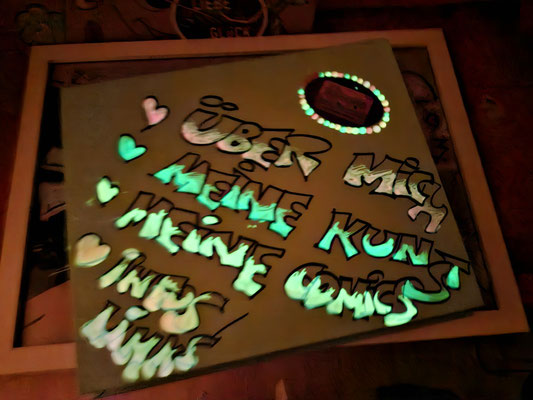 LIEBE
GLÜCK
ÜBER MICH
MEINE KUNST
MEINE COMICS
INFOS
LINKS